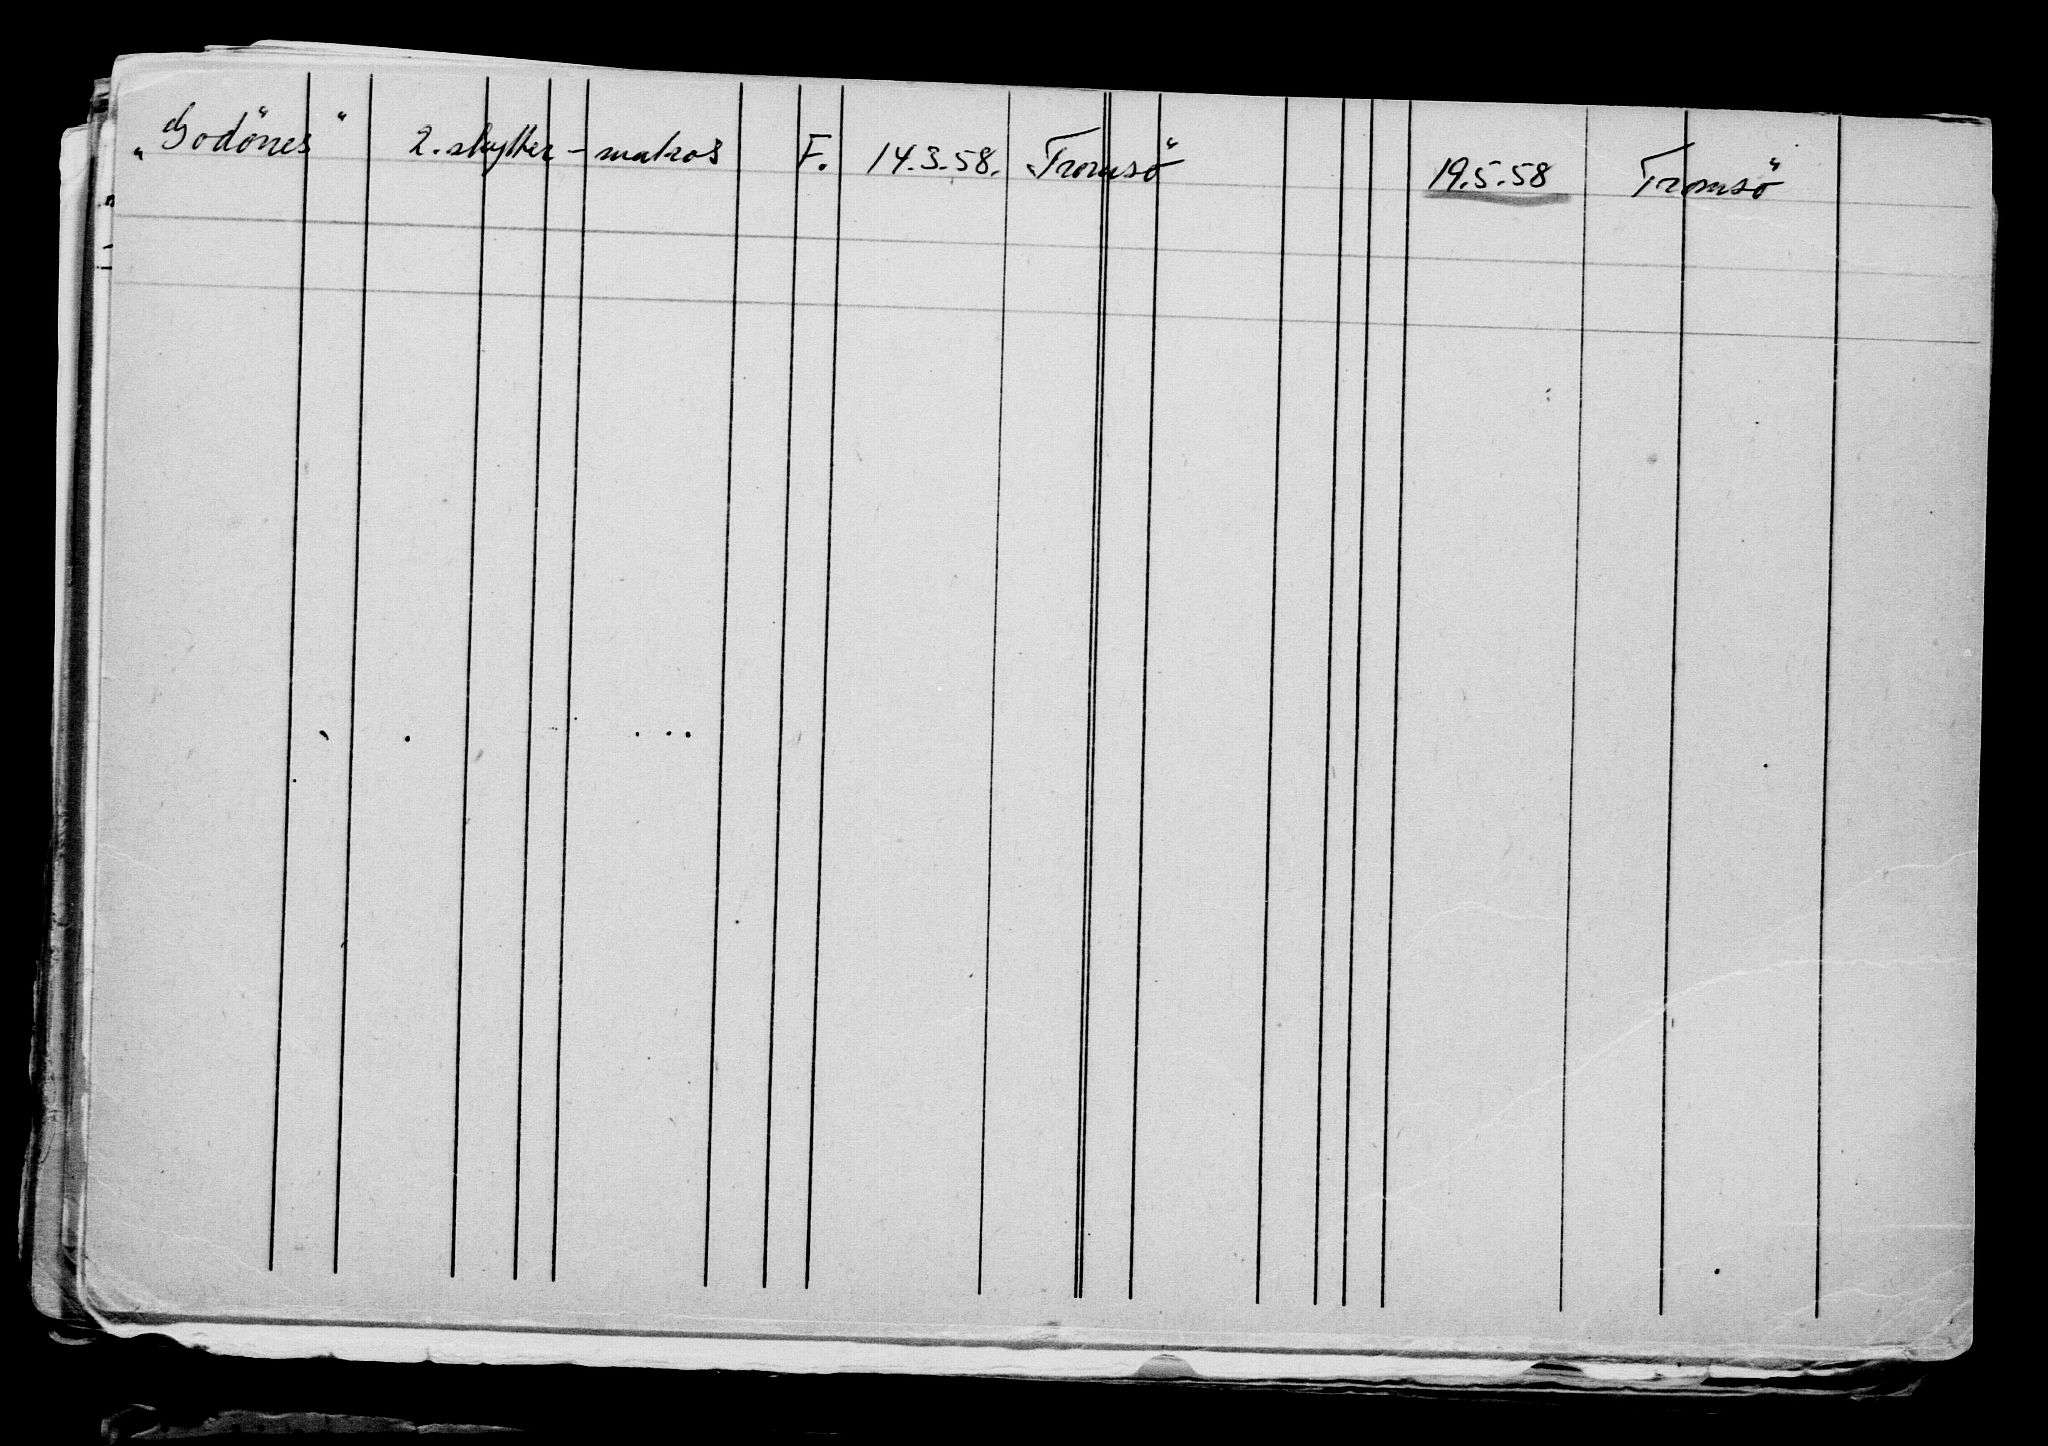 „Godönes“ 2. skytter - matros F. 14.3.58. Tromsö 19.5.58 Tromsö